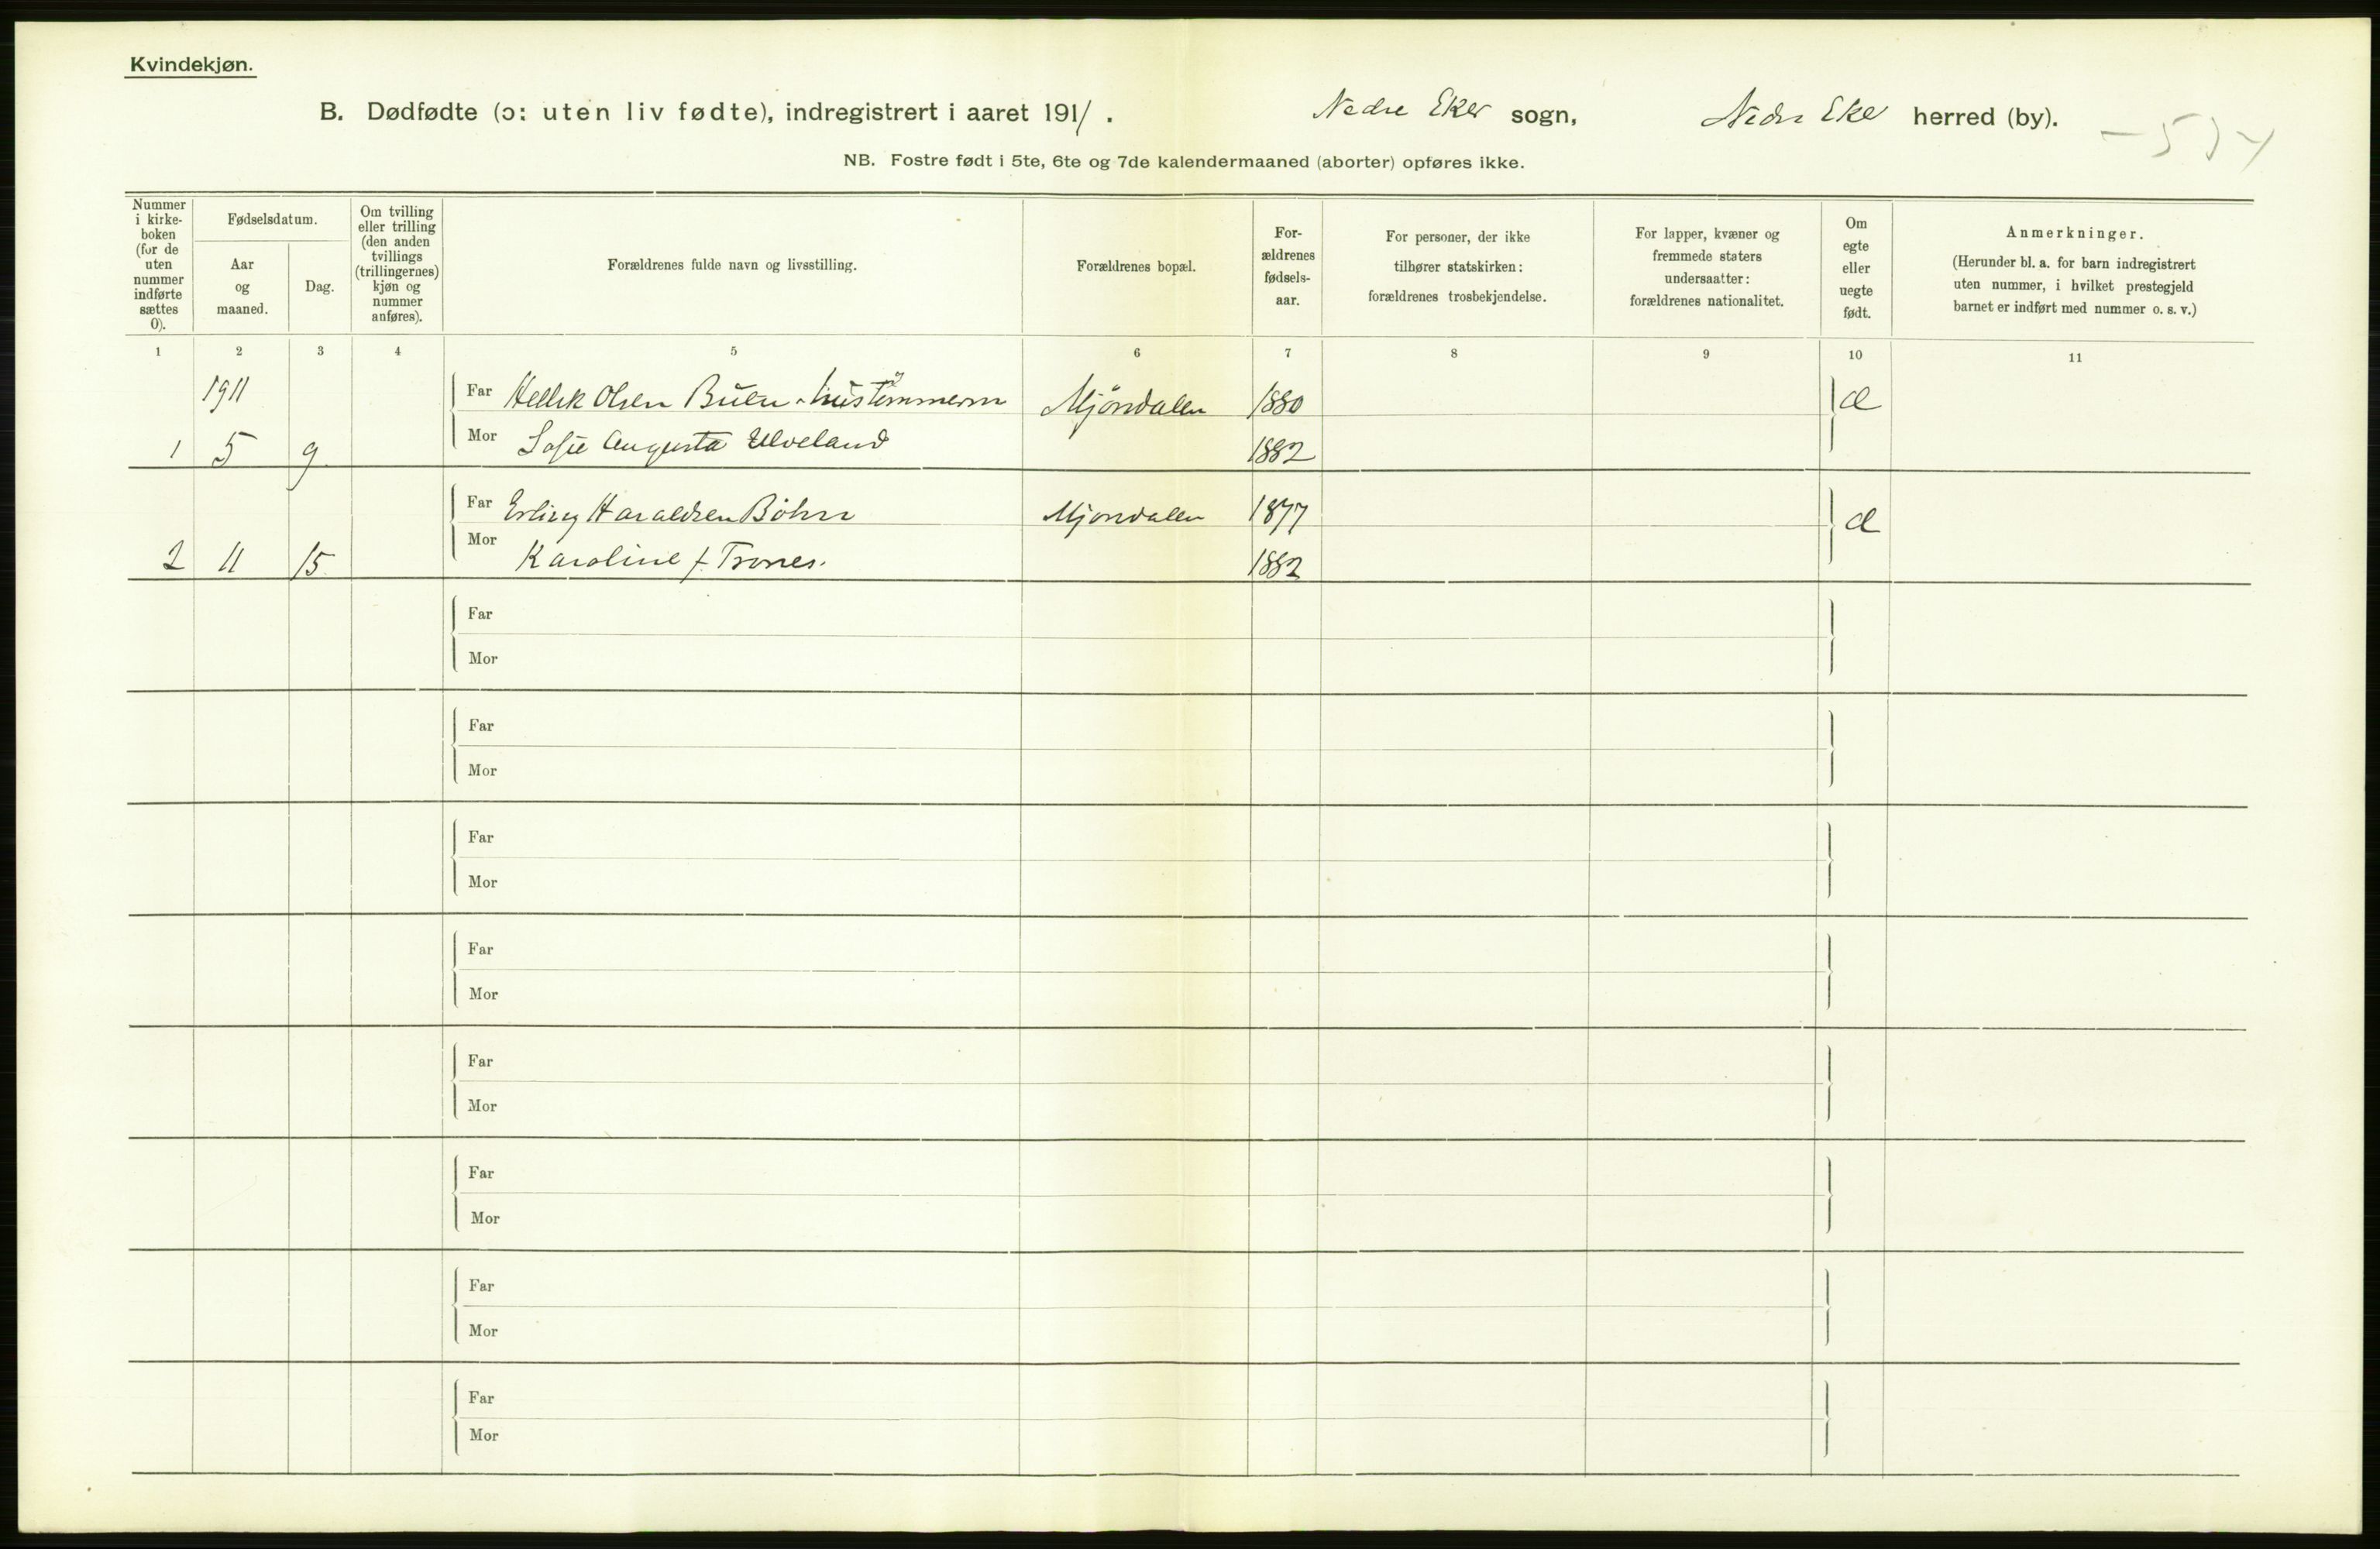 Kvindekjøn.
B. Dødfødte (ɔ: uten liv fødte), indregistrert i aaret 1911. Nedre Eker sogn, Nedre Eker herred (by).
NB. Fostre født i 5te, 6te og 7de kalendermaaned (aborter) opføres ikke.
Nummer i kirkeboken (for de uten nummer indførte sættes 0).
Fødselsdatum.
Aar og maaned.
Dag.
Om tvilling eller trilling (den anden tvillings (trillingernes) kjøn og nummer anføres).
Forældrenes fulde navn og livsstilling.
Forældrenes bopæl.
For-ældrenes fødsels-aar.
For personer, der ikke tilhører statskirken: forældrenes trosbekjendelse.
For lapper, kvæner og fremmede staters undersaatter: forældrenes nationalitet.
Om egte eller uegte født.
Anmerkninger.
(Herunder bl. a. for barn indregistrert uten nummer, i hvilket prestegjeld barnet er indført med nummer o. s. v.)
1 2 3 4 5 6 7 8 9 10 11
1911 Far Hellik Olsen Buen Mjöndalen 1880
1 5 9 Mor Sofie Augusta Ulveland 1882
Far Erling Haraldsen Böhn Mjondalen 1877
2 11 15 Mor Karoline f. Trones. 1882
Far
Mor
Far
Mor
Far
Mor
Far
Mor
Far
Mor
Far
Mor
Far
Mor
Far
Mor